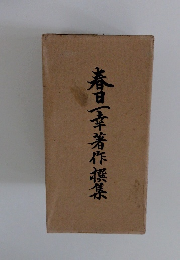 春日一幸著作撰集